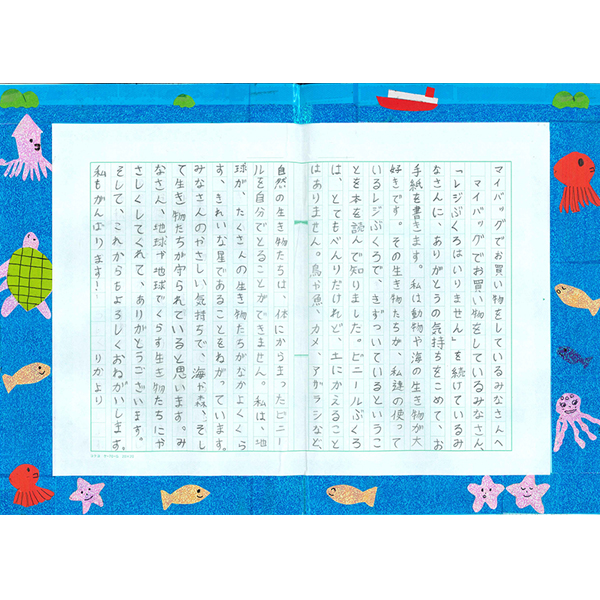 マイバッグでお買い物をしているみなさんへ
マイバッグでお買い物をしているみなさん、
「レジぶくろはいりません」を続けているみ
なさんに、ありがとうの気持ちをこめて、お
手紙を書きます。私は動物や海の生き物が大
好きです。その生き物たちが、私達の使って
いるレジぶくろで、きずついているというこ
とを本を読んで知りました。ビニールぶくろ
は、とてもべんりだけれど、土にかえること
はありません。鳥や魚、カメ、アザラシなど、
自然の生き物たちは、体にからまったビニー
ルを自分でとることができません。私は、地
球が、たくさんの生き物たちがなかよくくら
す、きれいな星であることをねがっています。
みなさんのやさしい気持ちで、海や森、そし
て生き物たちが守られていると思います。み
なさん、地球や地球でくらす生き物たちにや
さしくしてくれて、ありがとうございます。
そして、これからもよろしくおねがいします。
私もがんばります！
りかより